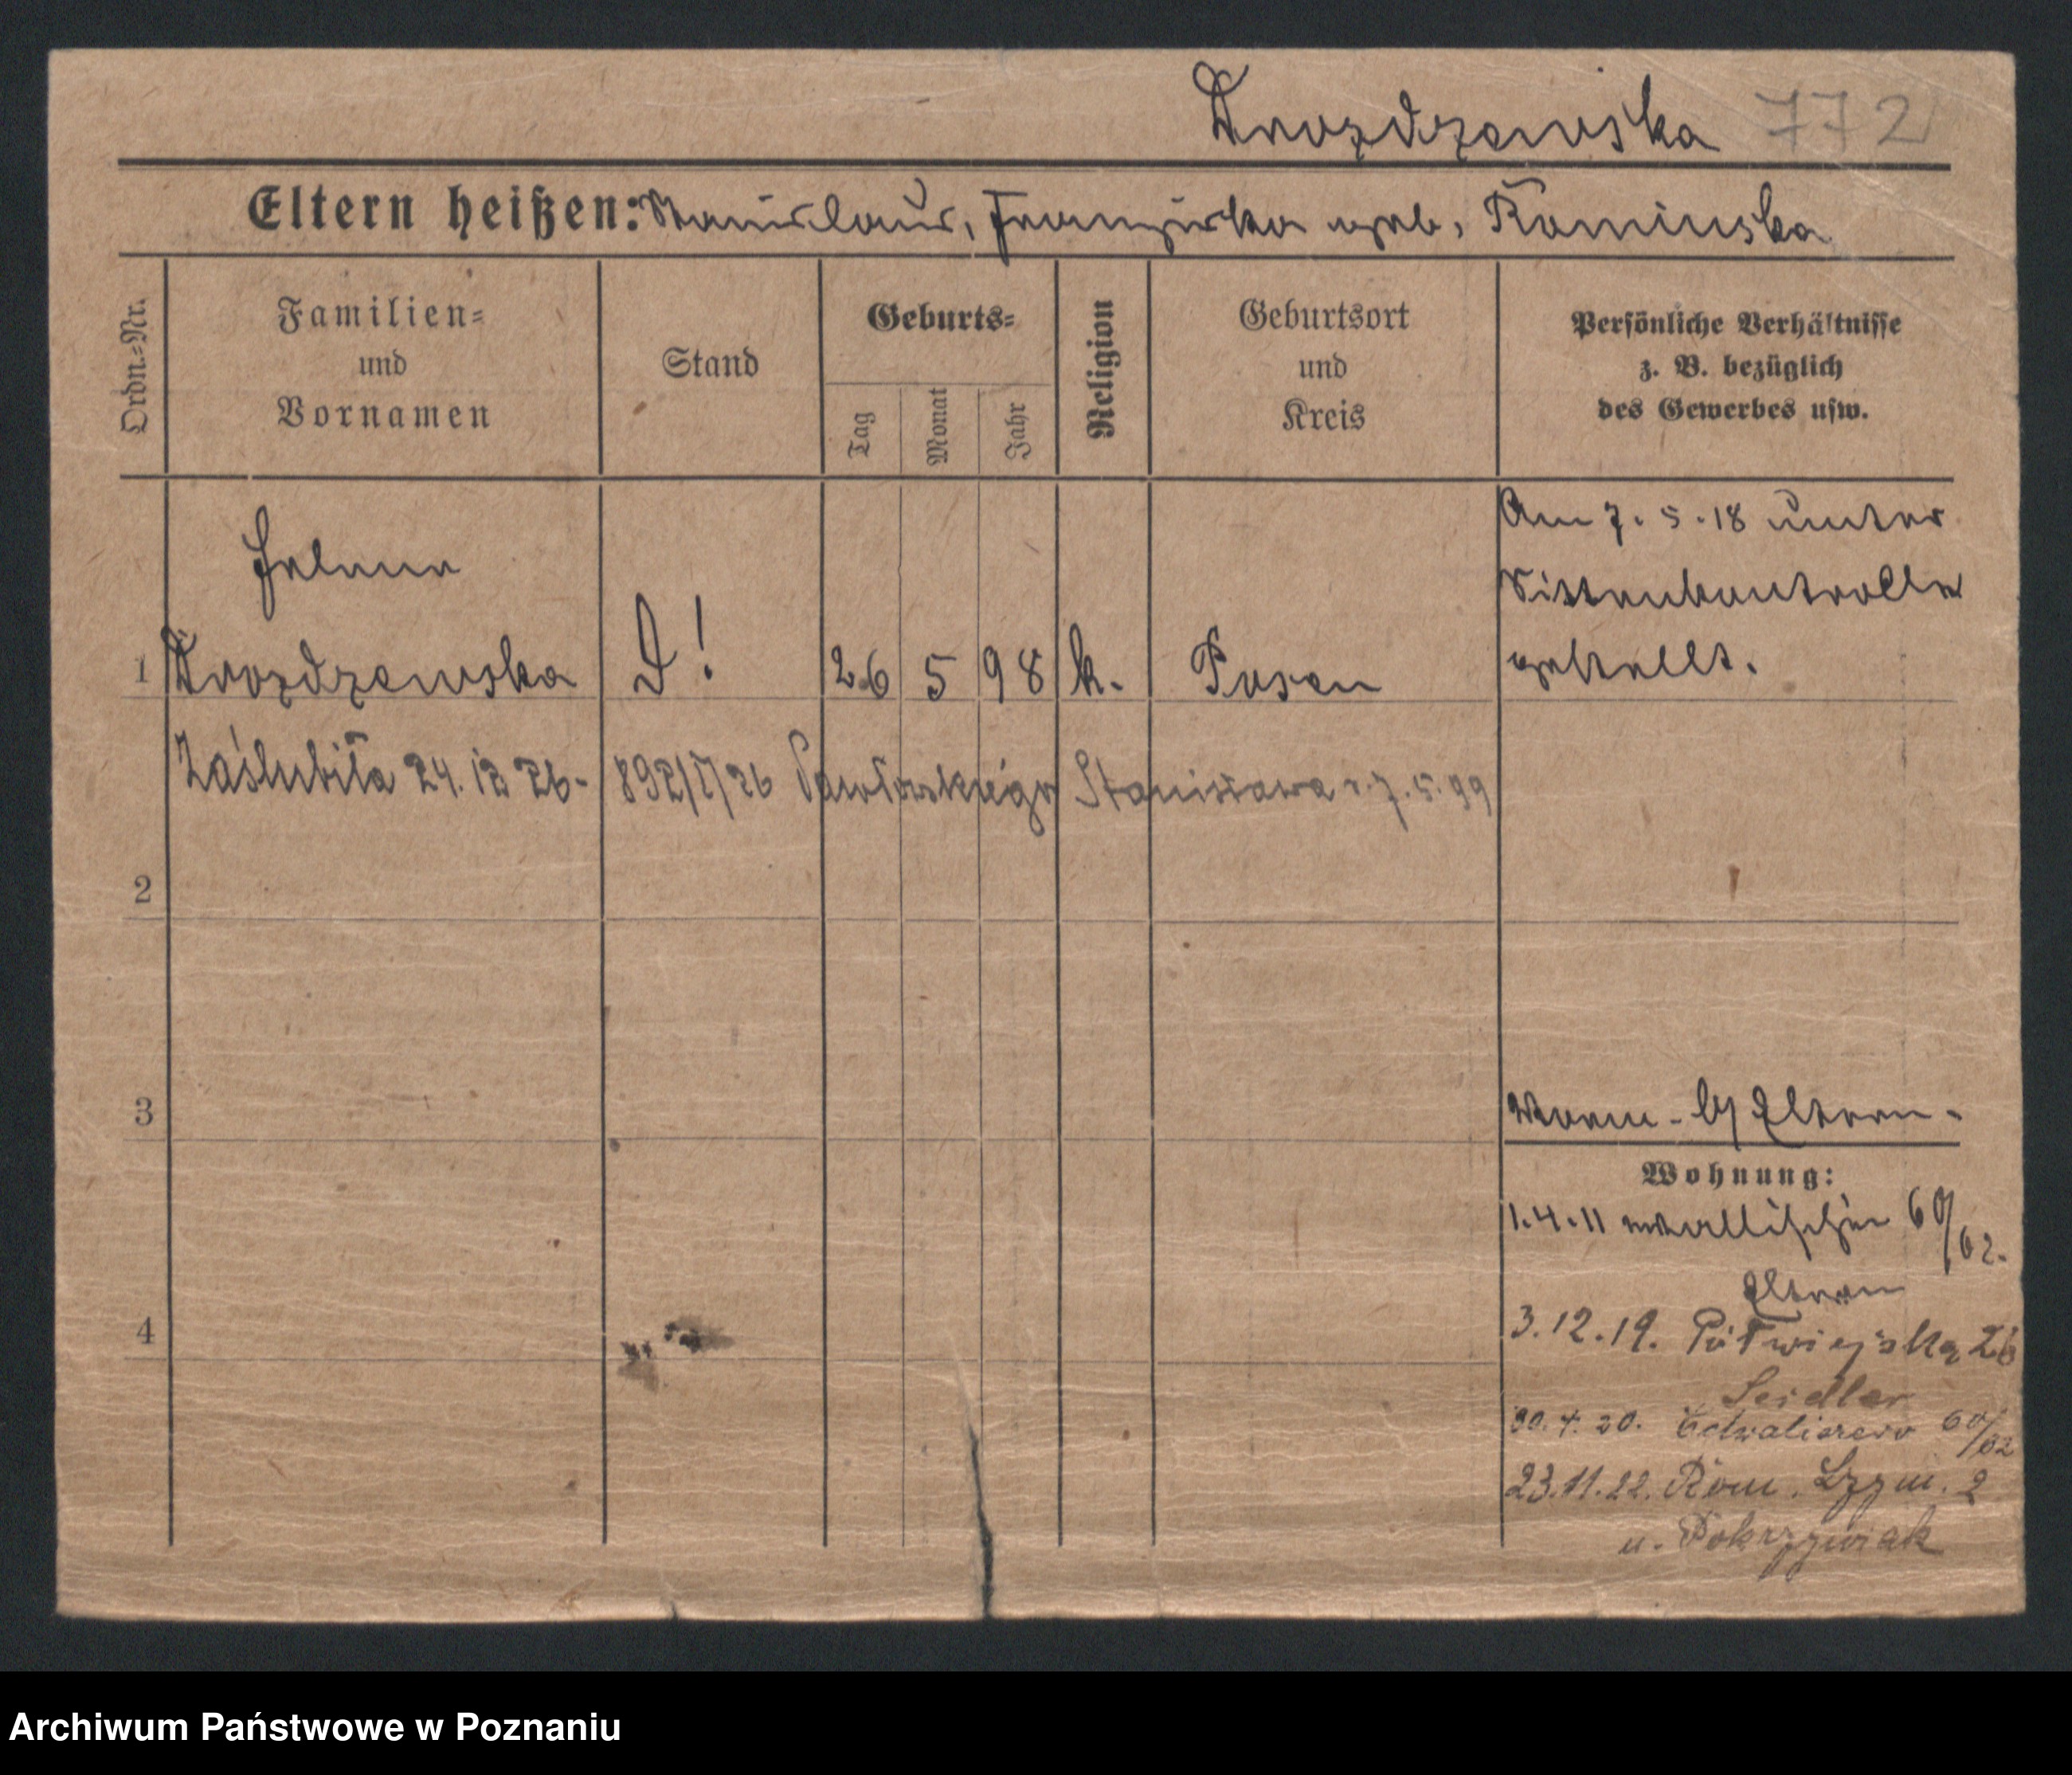 Drozdzewska 772
Eltern heißen: Stanislaus, Franziska geb. Kaminska
Ordn.=Nr.
Familien=
und
Vornamen
Stand
Geburts=
Tag
Monat
Jahr
Religion
Geburtsort
und
Kreis
Persönliche Verhältnisse
z. B. bezüglich
des Gewerbes usw.
Am 7.5.18 unter
Sittenkontrolle
gestellt.
Helene
1 Drozdzewska D! 26 5 98 k. Posen
Zaślubiła 24. 12 26 - 892/I/26 Pawłowskiego Stanisława r. 7.5.99
2
3
b/ Eltern.
Wohnung:
1.4.11 Wallischei 60/62.
Eltern
4
3.12.19. Półwiejska 26
Seidler
30.4.20. Chwaliszewo 60/62
23.11.22. Rom. Szym. 2
u. Pokrzywiak
Archiwum Państwowe w Poznaniu